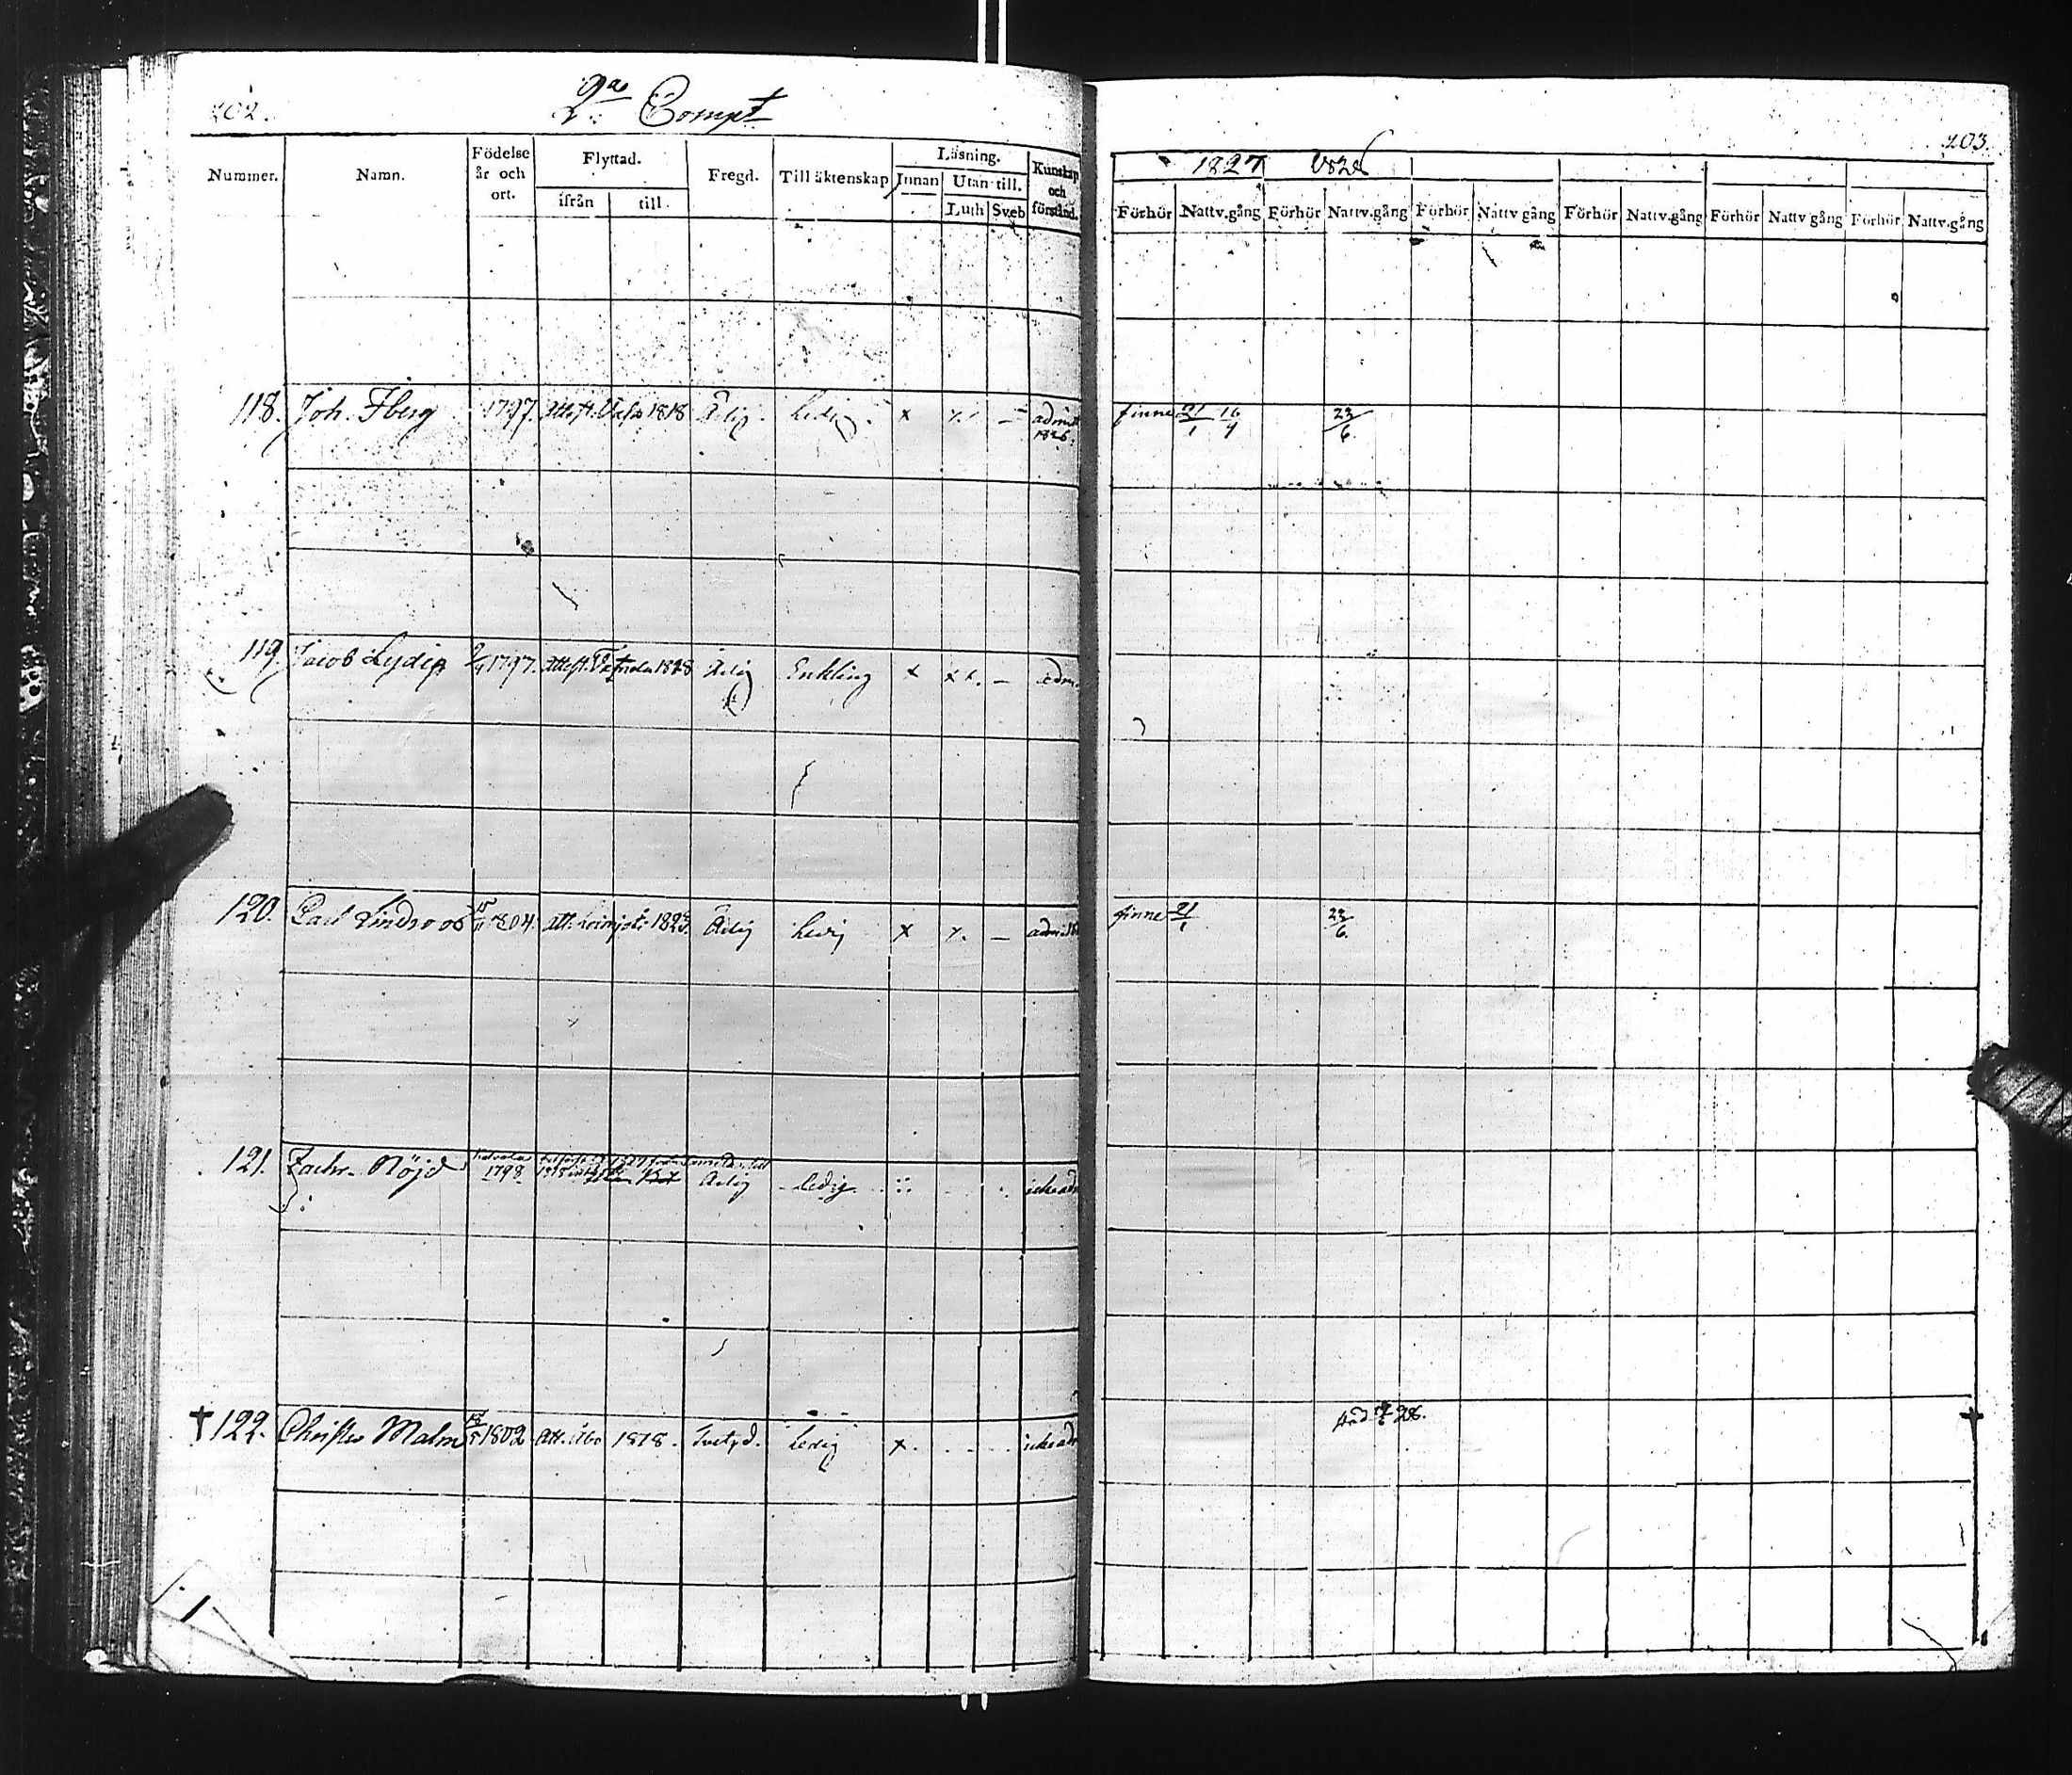 202.
2:a Compt
Nummer. Namn. Födelse år och ort. Flyttad. ifrån till. Fregd. Till äktenskap Läsning. Innan Utan till. Luth Sveb Kunskap och förstånd.
118. Joh. Iberg 1797. Attest. Vasa 1818 Ärlig. Ledig. x x. — admit 1826.
119. Jacob 1797. Attest. 1828 Ärlig Enkling x x x. — adm.
120. Carl Lindroos 15/11 1804. Att. 1823. Ärlig Ledig x x. — admit
121. Zachr. Nöjd 1798. Ärlig Ledig. icke adm
† 122. Christer Malm 1802 Att. Åbo 1818. Ledig x. icke adm
203.
1827 1828
Förhör Nattv.gång Förhör Nattv.gång Förhör Nattv gång Förhör Nattv.gång Förhör Nattv gång Förhör Nattv.gång
finne 21/1 16/4 23/6
finne 21/1 23/6.
död 28. †